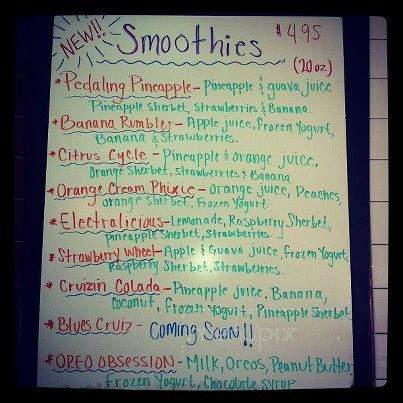 NEW!! Smoothies $4.95
(20oz)
*Pedaling Pineapple- Pineapple & guava juice,
Pineapple Sherbet, Strawberries & Banana.
*Banana Rumbler- Apple juice, Frozen Yogurt,
Banana & Strawberries.
*Citrus Cycle- Pineapple & orange juice,
Orange Sherbet, Strawberries & Banana
*Orange Cream Phixie- orange juice, Peaches,
orange Sherbet, Frozen Yogurt.
*Electralicious- Lemonade, Raspberry Sherbet,
Pineapple Sherbet, Strawberries.
*Strawberry Wheel- Apple & Guava juice, Frozen Yogurt,
Raspberry Sherbet, Strawberries.
*Cruizin Colada- Pineapple juice, Banana,
Coconut, Frozen Yogurt, Pineapple Sherbet
*Blues Cruiz- Coming Soon!!
*OREO OBSESSION- Milk, Oreos, Peanut Butter
Frozen Yogurt, Chocolate syrup